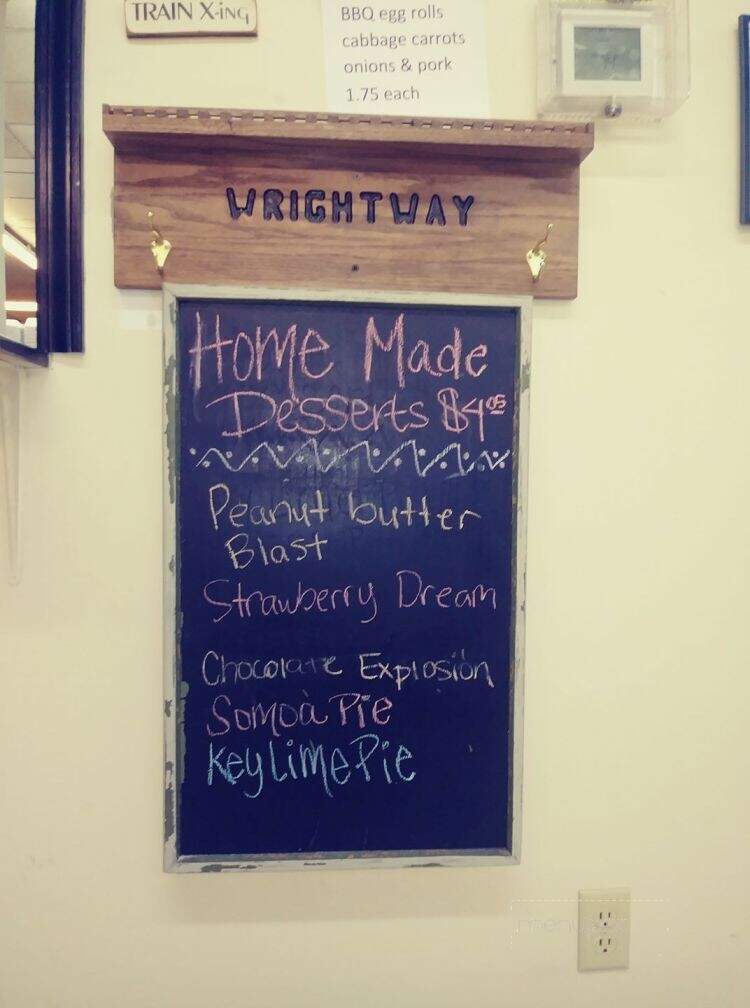 TRAIN X-ing
BBQ egg rolls
cabbage carrots
onions & pork
1.75 each
WRIGHTWAY
Home Made
Desserts $4.05
Peanut butter
Blast
Strawberry Dream
Chocolate Explosion
Somoa Pie
Key Lime Pie